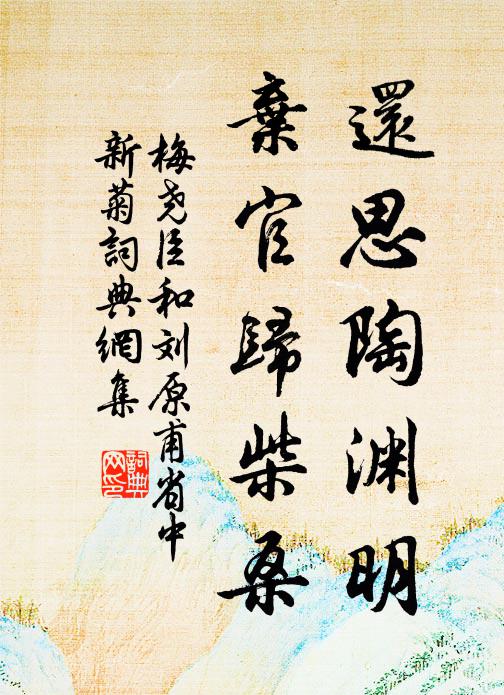 還思陶渊明
棄官歸柴桑
梅尧臣和刘原甫省中
新菊詞典網集
詞典网印